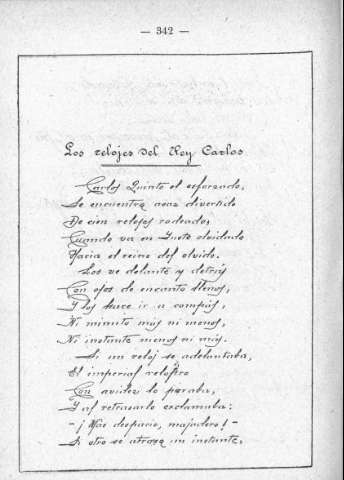 — 342 —
Los relojes del Rey Carlos
Carlos Quinto el esforzado,
Se encuentra asaz divertido
De cien relojes rodeado,
Cuando va en Yuste olvidado
Hacia el reino del olvido.
Los ve delante y detrás
Con ojos de encanto llenos,
Y los hace ir a compás,
Ni minuto más ni menos,
Ni instante menos ni más.
Si un reloj se adelantaba,
El imperial relojero
Con avidez lo paraba,
Y al retrasarlo exclamaba:
— ¡Más despacio, majadero! —
Si otro se atrasa un instante,